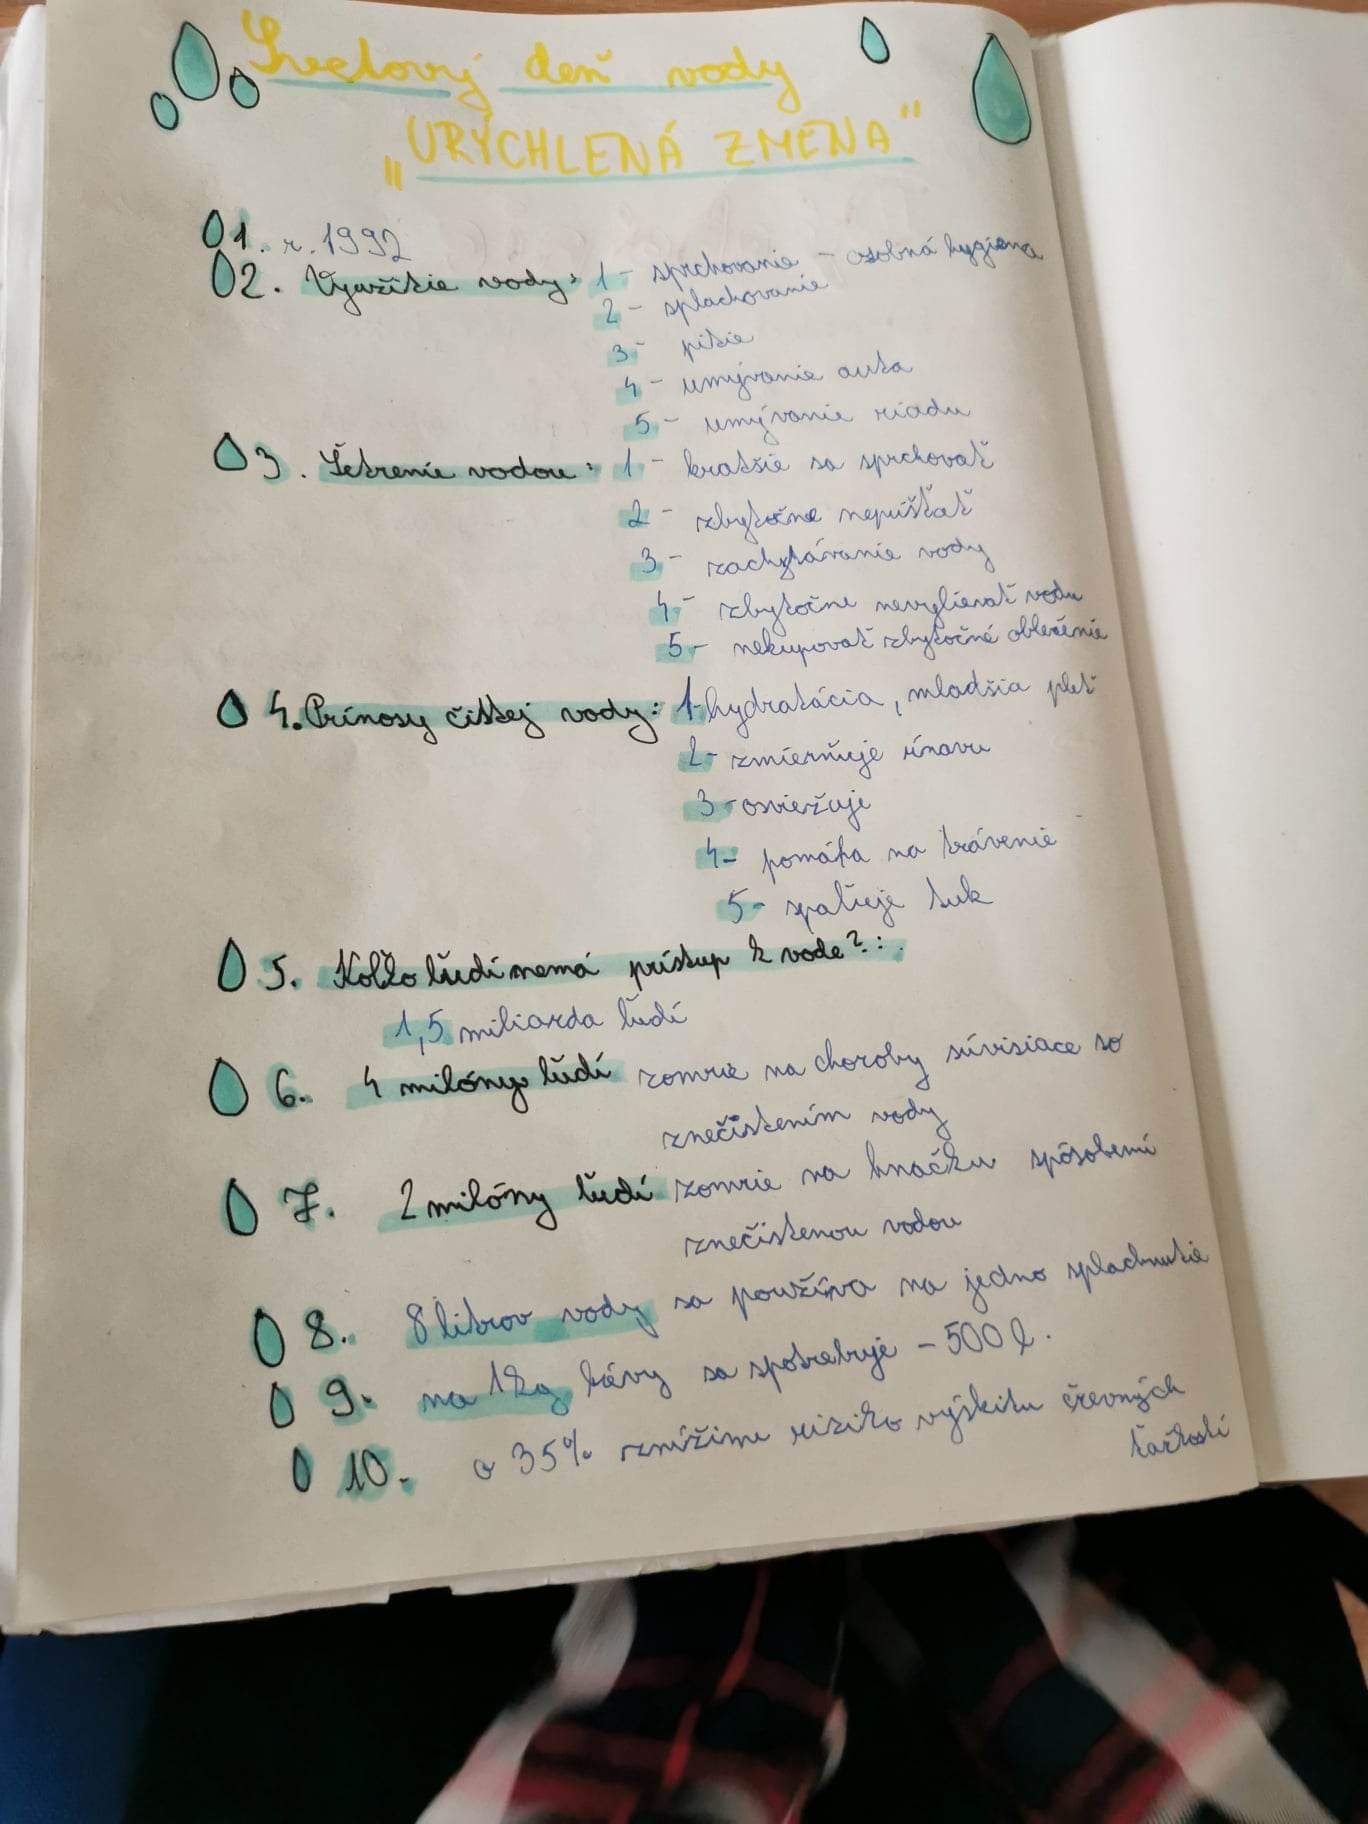 Svetový deň vody
„URÝCHLENÁ ZMENA"
1. r. 1992
2. Využitie vody: 1- sprchovanie - osobná hygiena
2- splachovanie
3- pitie
4- umývanie auta
5- umývanie riadu
3. Šetrenie vodou: 1- kratšie sa sprchovať
2- zbytočne nepúšťať
3- zachytávanie vody
4- zbytočne nevylievať vodu
5- nekupovať zbytočné oblečenie
4. Prínosy čistej vody: 1- hydratácia, mladšia pleť
2- zmierňuje únavu
3- osviežuje
4- pomáha na trávenie
5- spaľuje tuk
5. Koľko ľudí nemá prístup k vode?:
1,5 miliarda ľudí
6. 4 milóny ľudí zomrie na choroby súvisiace so
znečistením vody
7. 2 milóny ľudí zomrie na hnačku spôsobenú
znečistenou vodou
8. 8 litrov vody sa používa na jedno splachnutie
9. na 1kg kávy sa spotrebuje - 500 l.
10. o 35% znížime riziko výskitu črevných
ťažkostí